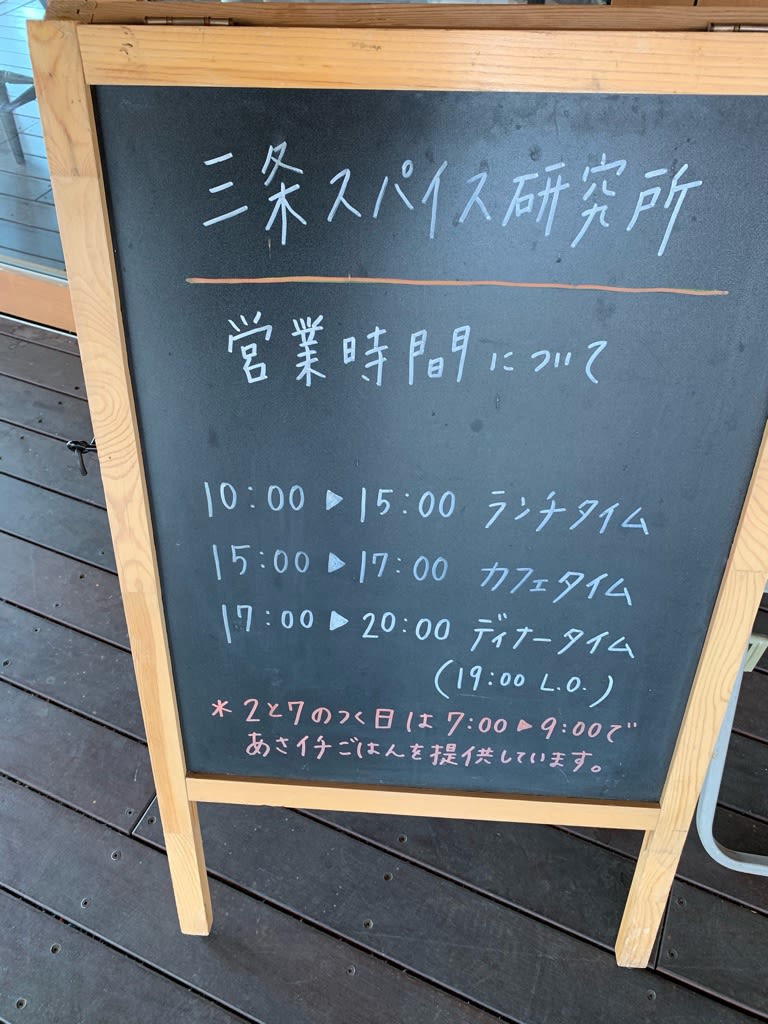 三条スパイス研究所
営業時間について
10:00 ▶ 15:00 ランチタイム
15:00 ▶ 17:00 カフェタイム
17:00 ▶ 20:00 ディナータイム
(19:00 L.O.)
* 2と7のつく日は 7:00 ▶ 9:00で
あさイチごはんを提供しています。